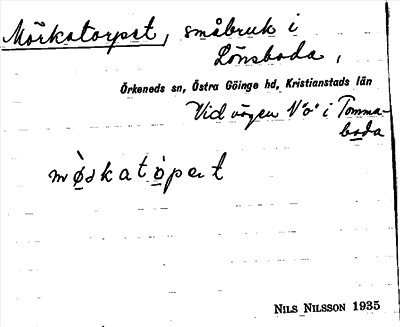 Mörkatorpet, småbruk i
Lönsboda,
Örkeneds sn, Östra Göinge hd, Kristianstads län
Vid vägen V"o" i Tomma-
boda
mø̀skatòpet
NILS NILSSON 1935